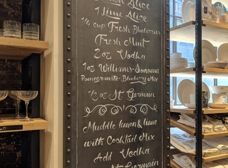 1 Lime Slice
1/4 cup Fresh Blueberries
Fresh Mint
2 oz Vodka
1 oz Williams-Sonoma
Pomegranate-Blueberry Mix
1/2 oz St Germain
Muddle lemon & lime
with Cocktail Mix
Add Vodka
St Germain